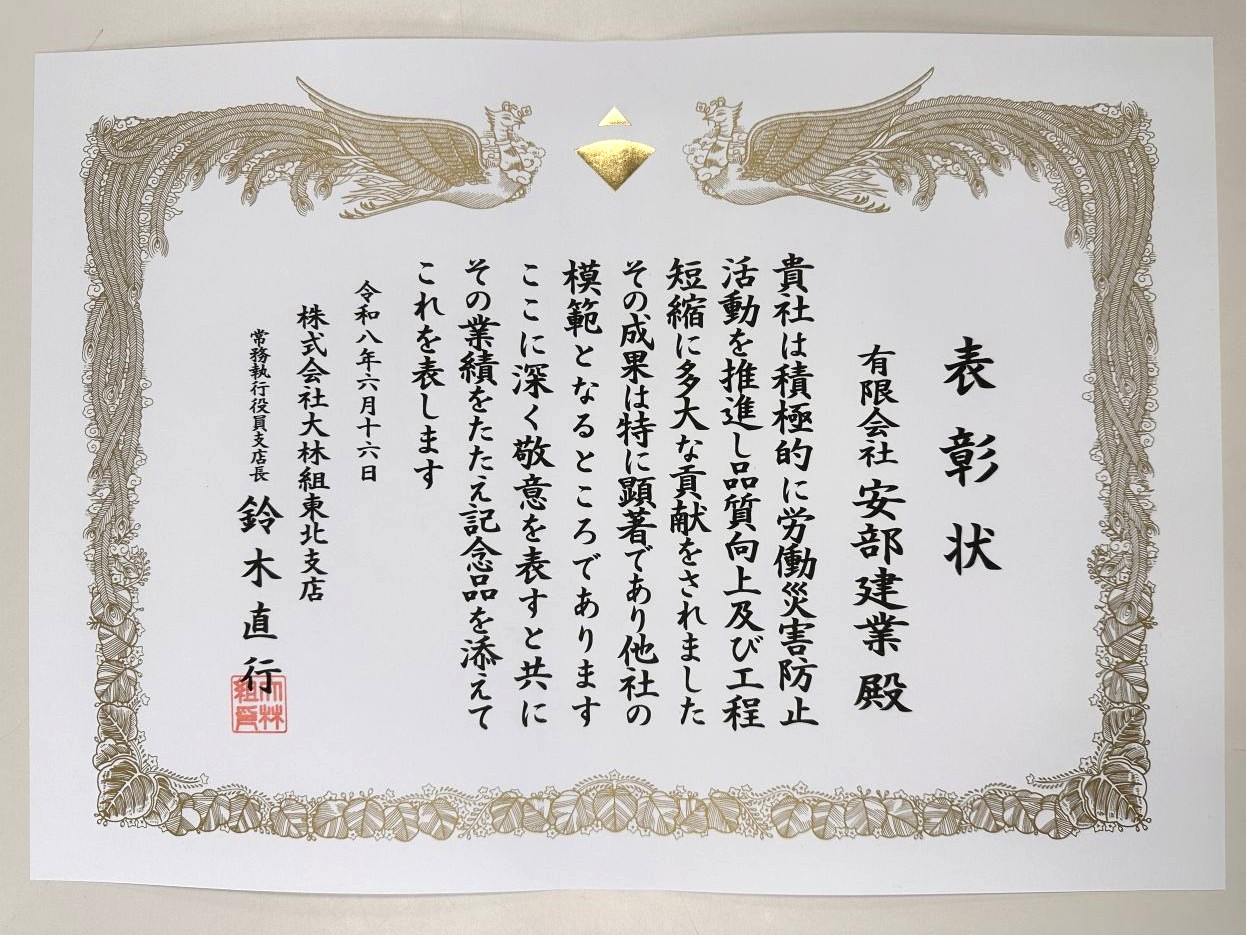 表彰状
有限会社安部建業殿
貴社は積極的に労働災害防止
活動を推進し品質向上及び工程
短縮に多大な貢献をされました
その成果は特に顕著であり他社の
模範となるところであります
ここに深く敬意を表すと共に
その業績をたたえ記念品を添えて
これを表します
令和八年六月十六日
株式会社大林組東北支店
常務執行役員支店長 鈴木直行